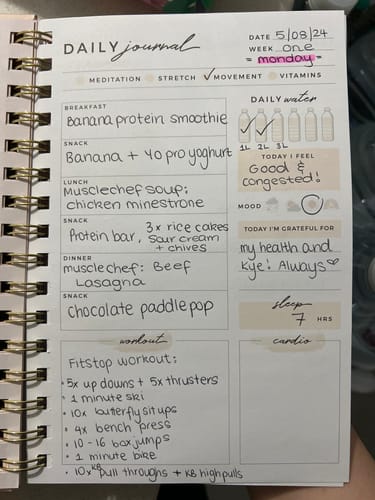 DAILY journal
DATE 5/08/24
WEEK one
= monday =
MEDITATION STRETCH ✓MOVEMENT VITAMINS
BREAKFAST
Banana protein smoothie
SNACK
Banana + YO pro yoghurt
LUNCH
Musclechef soup:
chicken minestrone
SNACK
Protein bar, 3x rice cakes
sour cream
+ chives
DINNER
muscle chef: Beef
Lasagna
SNACK
chocolate paddle pop
DAILY water
1L 2L 3L
TODAY I FEEL
Good &
congested!
MOOD
TODAY I'M GRATEFUL FOR
my health and
Kye! Always♡
sleep
7 HRS
workout
Fitstop workout:
• 5x up downs + 5x thrusters
• 1 minute ski
• 10x butterfly sit ups
• 4x bench press
• 10-16 box jumps
• 1 minute bike
• 10x KB pull throughs + KB high pulls
cardio